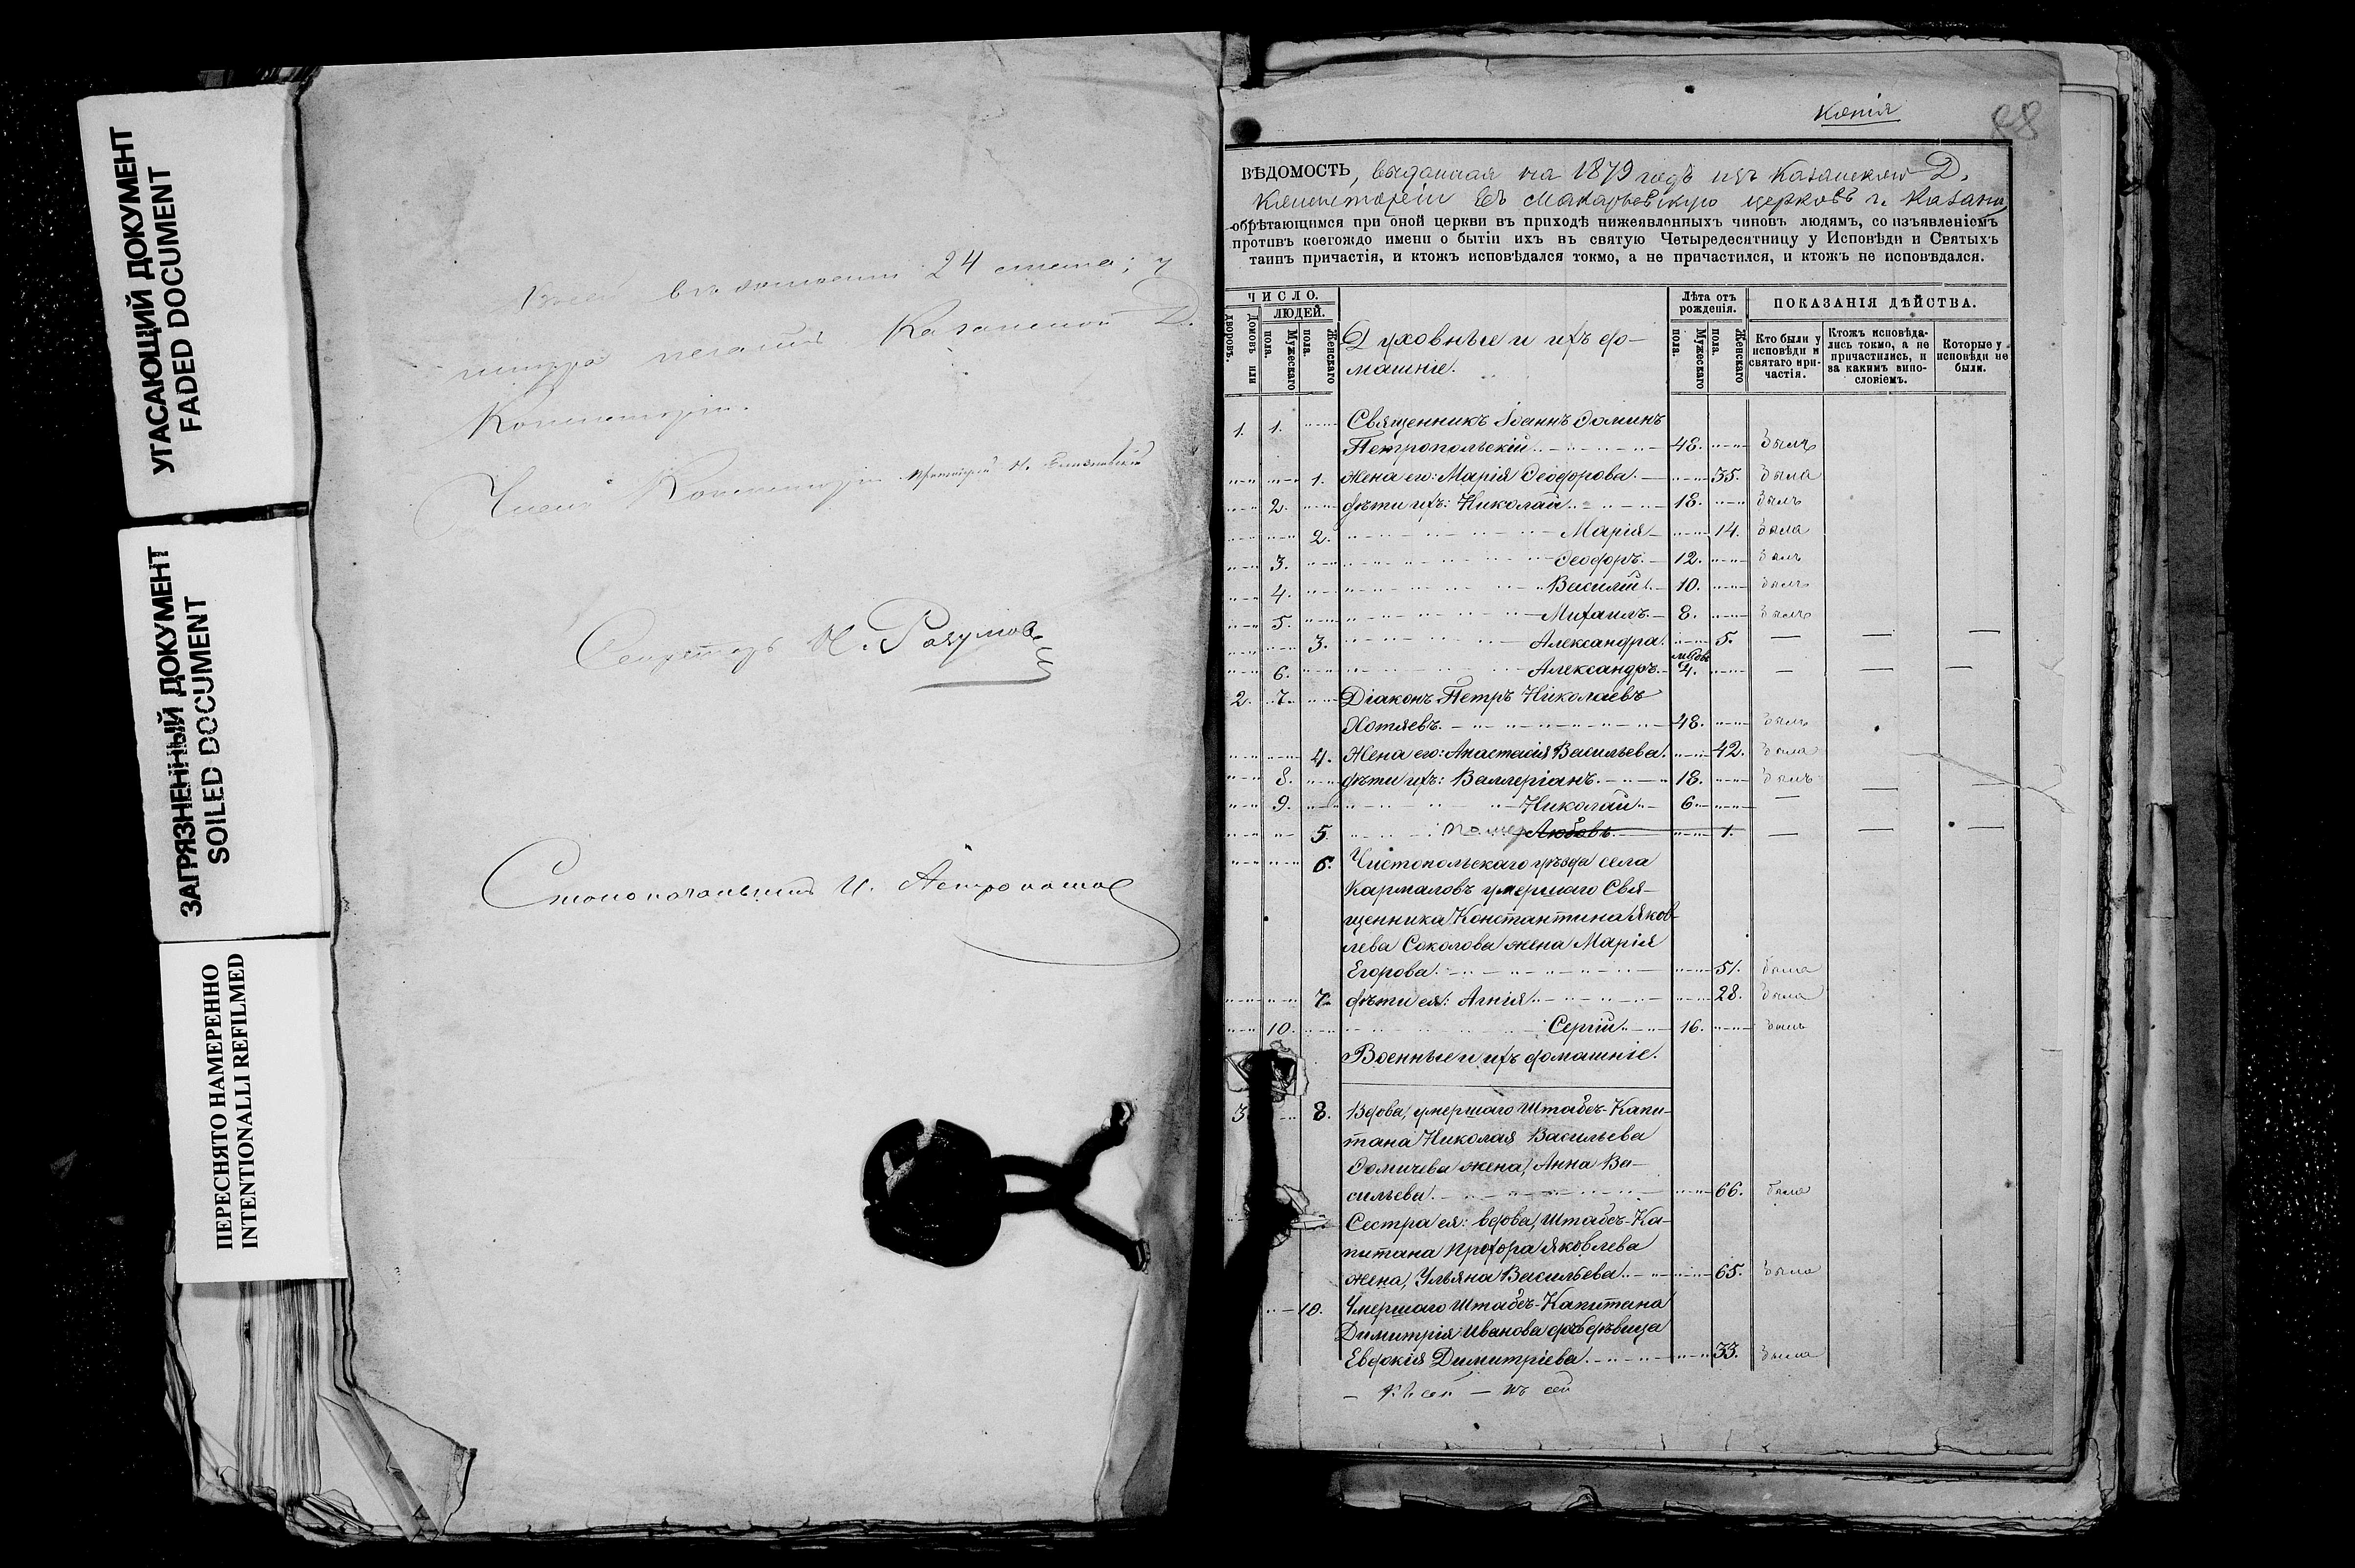 УГАСАЮЩИЙ ДОКУМЕНТ
FADED DOCUMENT
ЗАГРЯЗНЕННЫЙ ДОКУМЕНТ
SOILED DOCUMENT
ПЕРЕСНЯТО НАМЕРЕННО
INTENTIONALLI REFILMED
24 листа; у
печать Казанской Д.
Консисторіи.
Членъ Консисторіи Протоіерей
Секретарь Н. Разумов
Столоначальникъ И.
Копія
ВѢДОМОСТЬ, выданная на 1879 годъ изъ Казанской Д.
Консисторіи въ Макарьевскую церковь г. Казани
обрѣтающимся при оной церкви въ приходѣ нижеявлонныхъ чиновъ людямъ, со изъявленіемъ
противъ коегождо имени о бытіи ихъ въ святую Четыредесятницу у Исповѣди и Святыхъ
таинъ причастія, и ктожъ исповѣдался токмо, а не причастился, и ктожъ не исповѣдался.
ЧИСЛО.
ЛЮДЕЙ.
Домовъ или дворовъ.
Мужескаго пола.
Женскаго пола.
Духовные и ихъ до-
машніе.
Лѣта отъ рожденія.
Мужескаго пола.
Женскаго пола.
ПОКАЗАНІЯ ДѢЙСТВА.
Кто были у исповѣди и святаго при- частія.
Ктожъ исповѣда- лись токмо, а не причастились, и за какимъ випо- словіемъ.
Которые у исповѣди не были.
1. 1. Священникъ Іоаннъ Ѳоминъ
Петропольскій 48. былъ
1. Жена его: Марія Ѳеодорова 35. была
2. дѣти ихъ: Николай 18. былъ
2. Марія 14. была
3. Ѳеодоръ 12. былъ
4. Василій 10. былъ
5. Михаилъ 8. былъ
3. Александра 5. — — —
6. Александръ 4. — — —
2. 7. Діаконъ Петръ Николаевъ
Хотяевъ 48. былъ
4. Жена его: Анастасія Васильева 42. была
8. дѣти ихъ: Валлеріанъ 18. былъ
9. Николай 6. — — —
5. Любовь 1. — — —
6. Чистопольскаго уѣзда села
Кармаловъ умершаго Свя-
щенника Константина Яков-
лева Соколова жена Марія
Егорова 51. была
7. дѣти ея: Агнія 28. была
10. Сергій 16. былъ
Военные и ихъ домашніе.
3 8. Вдова, умершаго Штабсъ-Капи-
тана Николая Васильева
Ѳомичева жена, Анна Ва-
сильева 66. была
Сестра ея: вдова, Штабсъ-Ка-
питана Прохора Яковлева
жена, Ульяна Васильева 65. была
10. Умершаго Штабсъ-Капитана
Димитрія Иванова дѣвица
Евдокія Димитріева 33. была